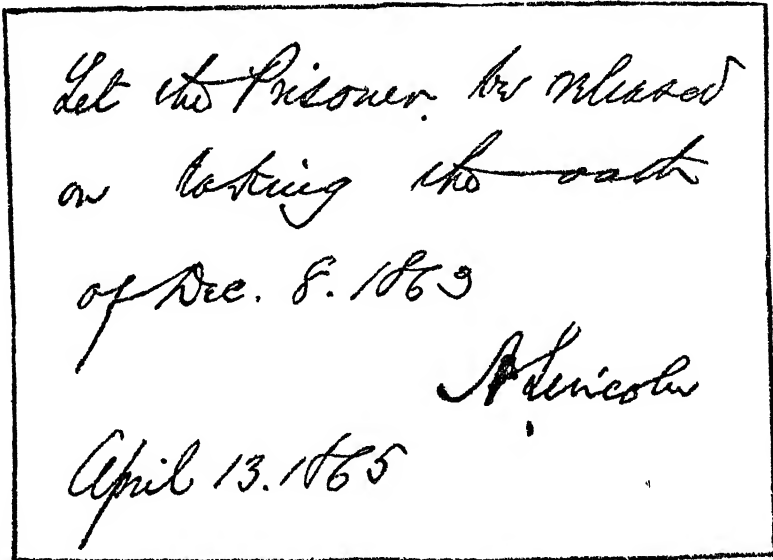 Let the Prisoner be released
on taking the oath
of Dec. 8. 1863
A Lincoln
April 13. 1865